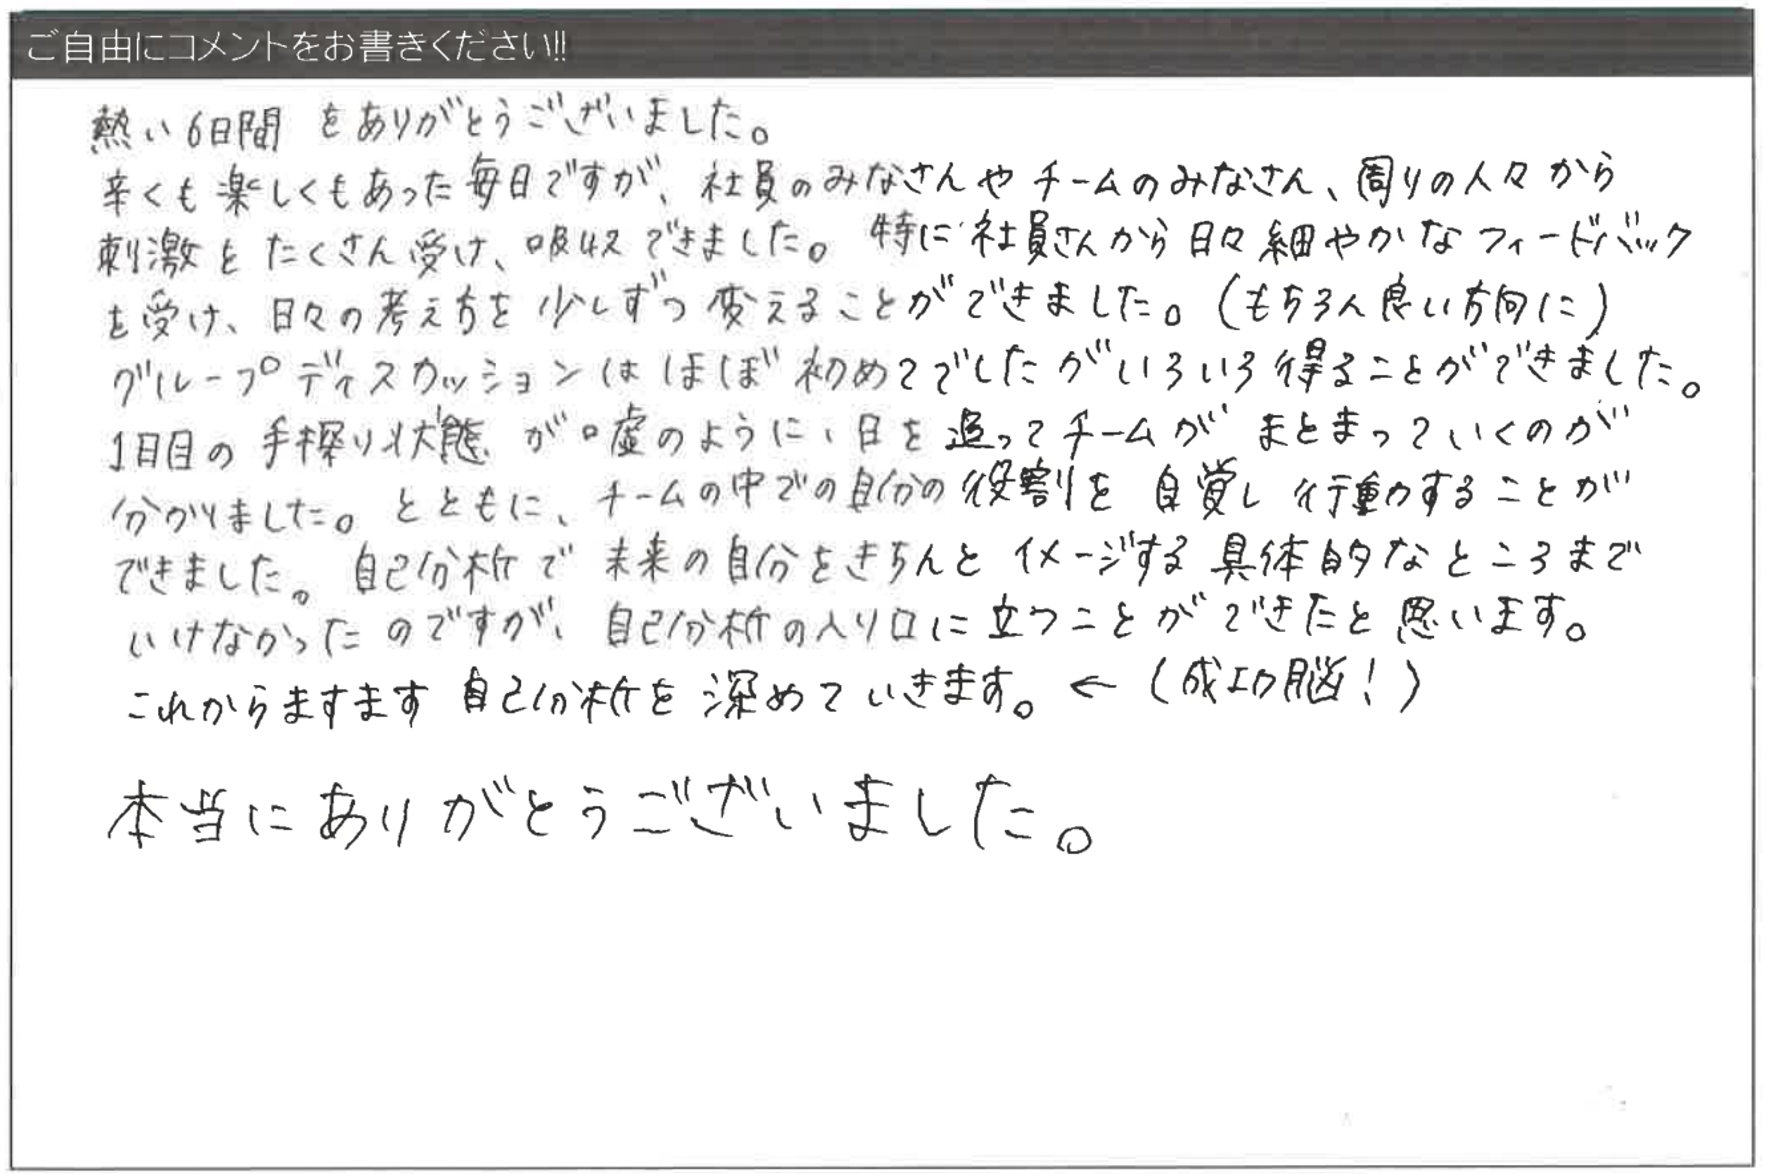 ご自由にコメントをお書きください!!
熱い6日間をありがとうございました。
辛くも楽しくもあった毎日ですが、社員のみなさんやチームのみなさん、周りの人々から
刺激をたくさん受け、吸収できました。特に社員さんから日々細やかなフィードバック
を受け、日々の考え方を少しずつ変えることができました。(もちろん良い方向に)
グループディスカッションはほぼ初めてでしたがいろいろ得ることができました。
1日目の手探り状態が嘘のように、日を追ってチームがまとまっていくのが
分かりました。とともに、チームの中での自分の役割を自覚し行動することが
できました。自己分析で未来の自分をきちんとイメージする具体的なところまで
いけなかったのですが、自己分析の入り口に立つことができたと思います。
これからますます自己分析を深めていきます。←(成功脳!)
本当にありがとうございました。